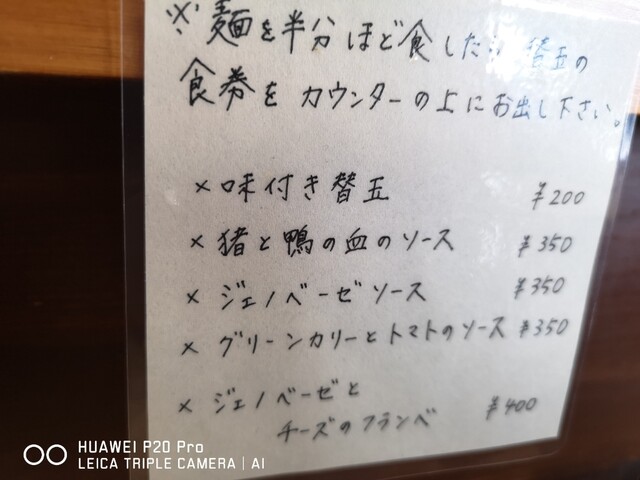 ※麺を半分ほど食したら替玉の
食券をカウンターの上にお出し下さい。
×味付き替玉 ¥200
×猪と鴨の血のソース ¥350
×ジェノベーゼソース ¥350
×グリーンカリーとトマトのソース ¥350
×ジェノベーゼと
チーズのフランベ ¥400
HUAWEI P20 Pro
LEICA TRIPLE CAMERA | AI